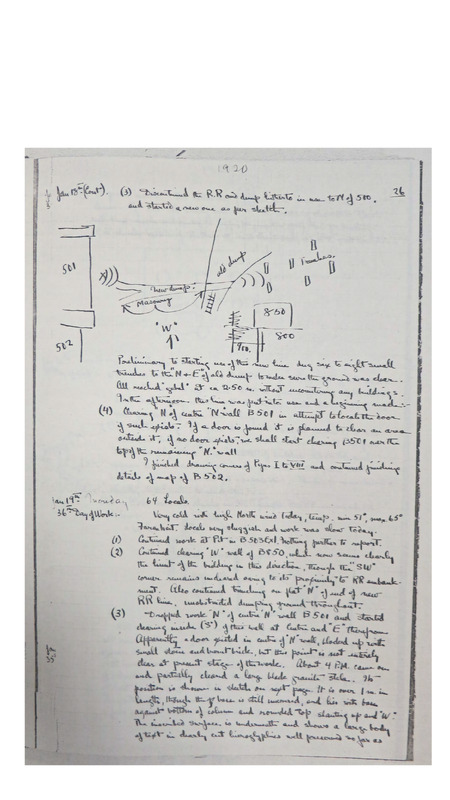 1920
26
Jan 18th (Cont). (3) Discontinued the R.R and dump hitherto in use to N of 500.
and started a new one as per sketch.
501
502
new dump
Masonry
old dump
Trenches
"W"
850
800
900
Preliminary to starting use of this new line dug six to eight small
trenches to the N + E of old dump to make sure the ground was clear.
All reached "gebel" at ca 2.50 m. without encountering any buildings.
In the afternoon this line was put into use and a beginning made.
(4) Clearing "N" of centre "N" wall B501 in attempt to locate the door
if such exists. If a door is found it is planned to clear an area
outside it, if no door exists, we shall start clearing B501 over the
top of the remaining "N." wall
I finished drawing corners of Pyrs I to VIII and continued finishing
details of map of B502.
Jan 19th Monday 64 Locals
36th Day of Work.. Very cold with high North wind today, temp. min 51°, max. 65°
Farenheit. Locals very sluggish and work was slow today.
(1) Continued work at Pit in B503. Nothing further to report.
(2) Continued clearing "W" wall of B850, which now seems clearly
the limit of the building in this direction, though the "SW"
corner remains uncleared owing to its proximity to RR embank-
ment. Also continued trenching on flat "N" of end of new
RR line, unobstructed dumping ground throughout.
(3) Dropped work "N" of centre "N" wall B501 and started
clearing inside (S) of this wall at Centre and "E" therefrom
Apparently a door existed in centre of "N" wall, blocked up with
small stones and burnt brick, but this point is not entirely
clear at present stage of the work. About 4 P.M. came on
and partially cleared a large black granite Stela. Its
position is shown in sketch on next page. It is over 1 m. in
length, though the base is still uncleared, and lies with base
against bottom of column and rounded top slanting up and "W".
The inscribed surface is underneath and shows a large body
of text in clearly cut hieroglyphics well preserved so far as